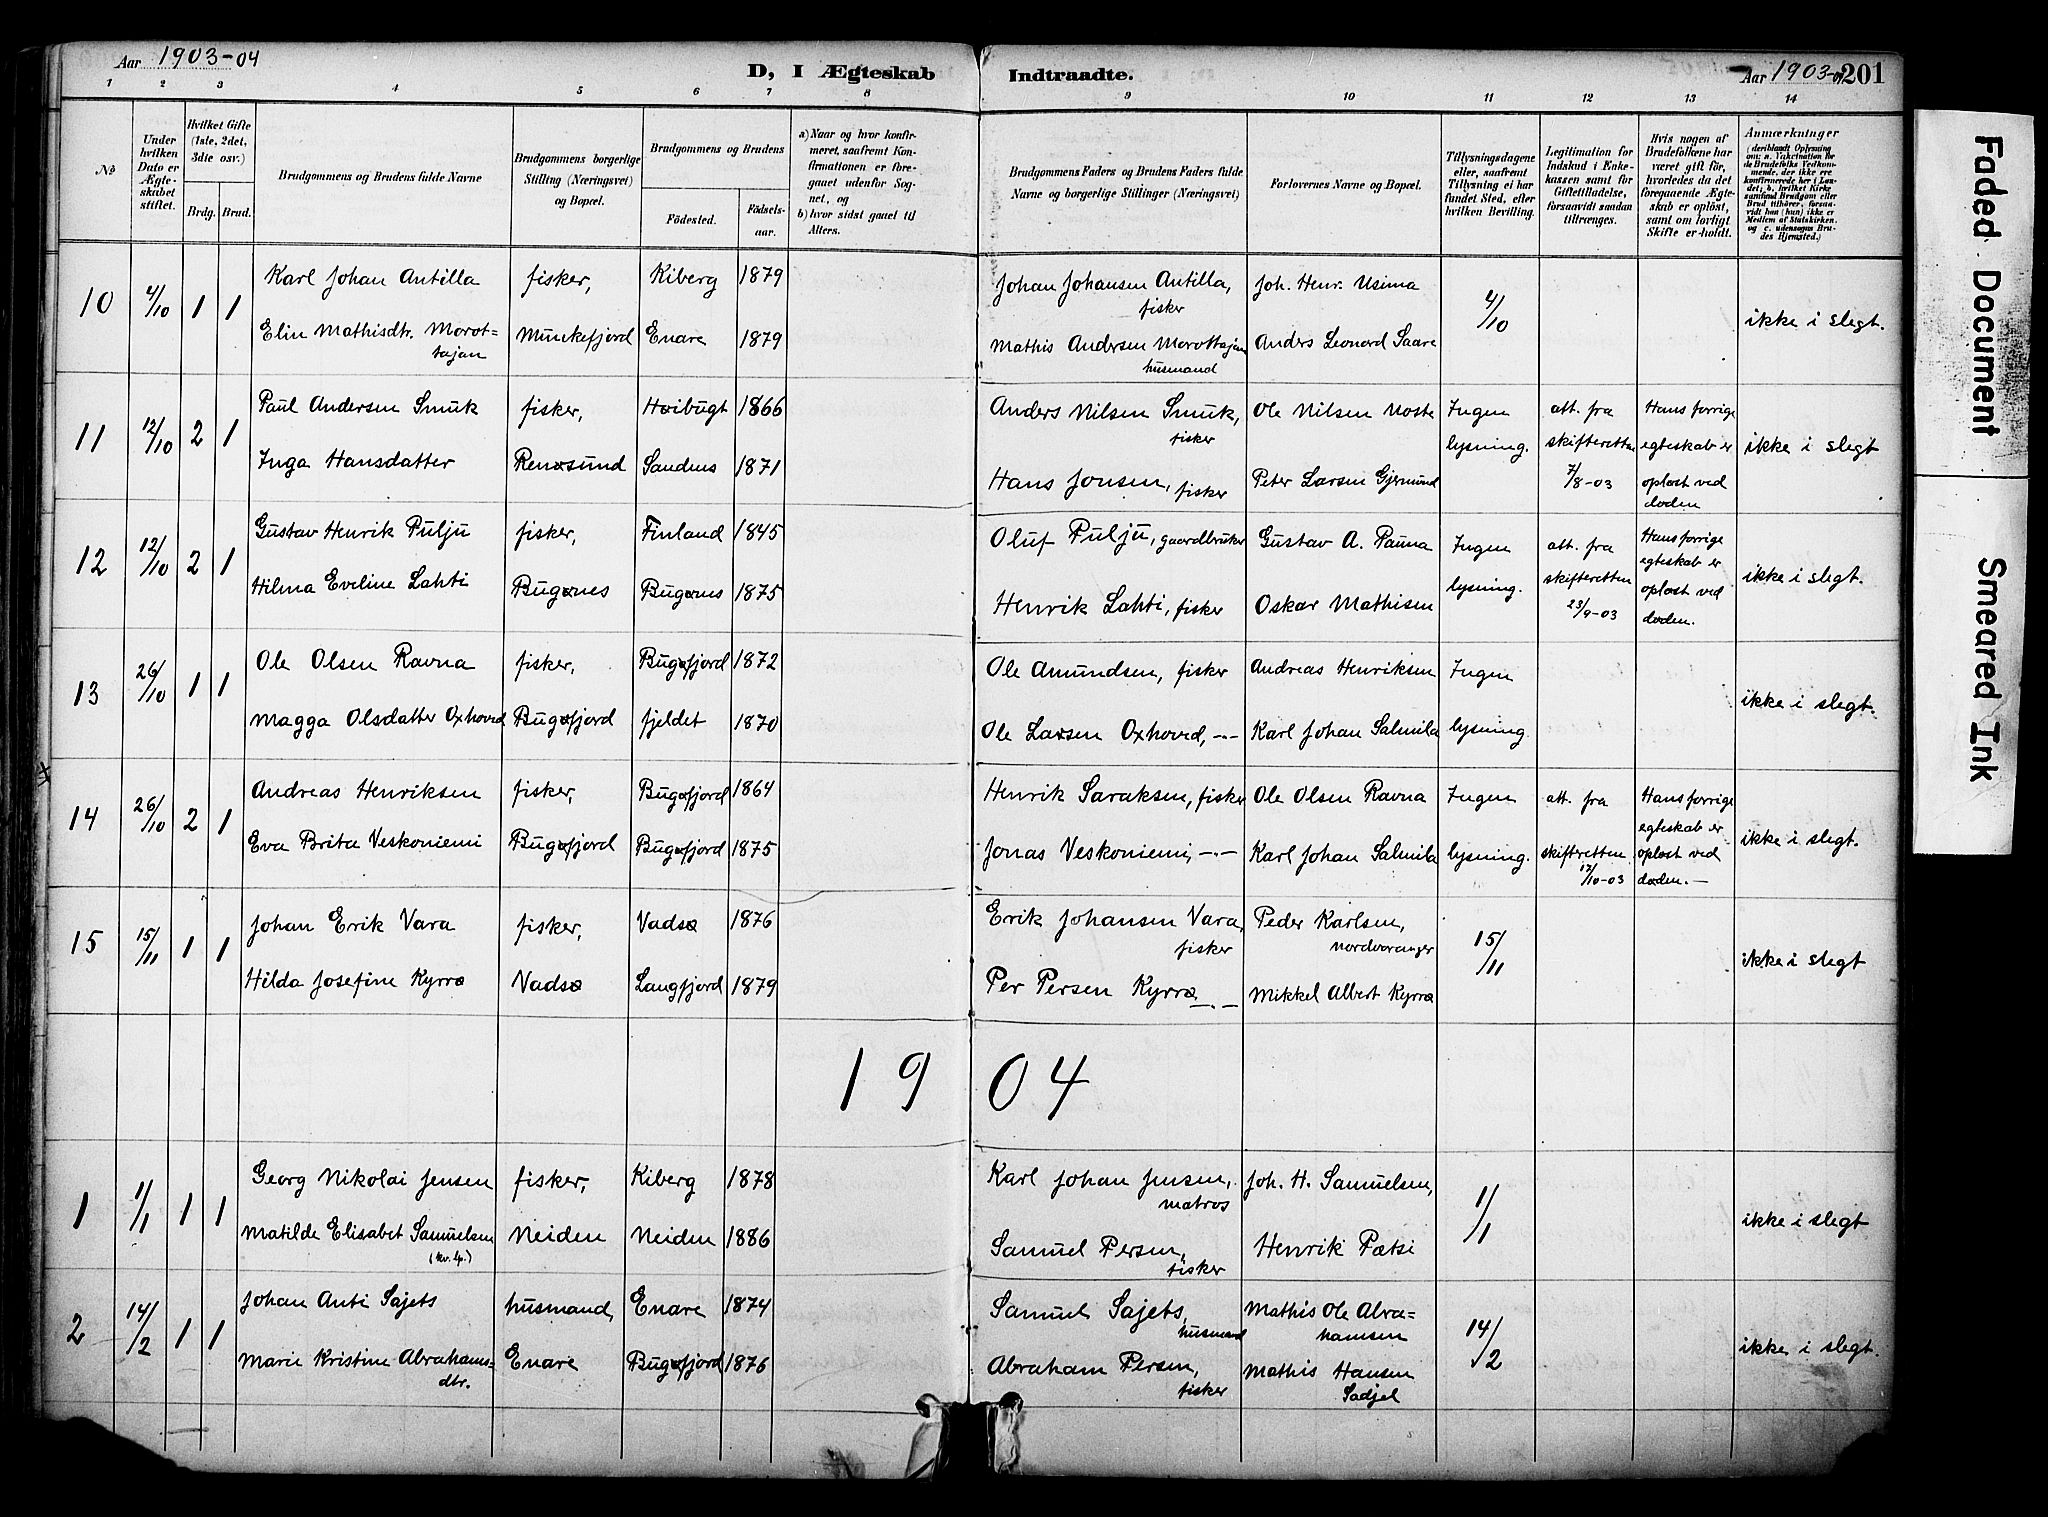 Aar 1903-04
D, I Ægteskab Indtraadte.
Aar 1903-04 201
1 2 3 4 5 6 7 8 9 10 11 12 13 14
No
Under hvilken Dato er Ægteskabet stiftet.
Hvilket Gifte (1ste, 2det, 3die osv.)
Brdg. Brud.
Brudgommens og Brudens fulde Navne
Brudgommens borgerlige Stilling (Næringsvei) og Bopæl.
Brudgommens og Brudens
Födested. Födselsaar.
a) Naar og hvor konfirmeret, saafremt Konfirmationen er foregaaet udenfor Sognet, og
b) hvor sidst gaaet til Alters.
Brudgommens Faders og Brudens Faders fulde Navne og borgerlige Stillinger (Næringsvei)
Forlovernes Navne og Bopæl.
Tillysningsdagene eller, saafremt Tillysning ei har fundet Sted, efter hvilken Bevilling.
Legitimation for Indskud i Enkekassen samt for Giftetilladelse, forsaavidt saadan tiltrænges.
Hvis nogen af Brudefolkene har været gift før, hvorledes da det foregaaende Ægteskab er opløst, samt om lovligt Skifte er holdt.
Anmærkninger (deriblandt Oplysning om: a. Vakcination for de Brudefolks Vedkommende, der ikke ere konfirmerede her i Landet; b. hvilket Kirkesamfund Brudgom eller Brud tilhører, forsaavidt han (hun) ikke er Medlem af Statskirken, og c. udensogns Brudes Hjemsted.)
10 4/10 1 1 Karl Johan Antilla fisker, Kiberg 1879 Johan Johansen Antilla, fisker Joh. Henr. Usima 4/10 ikke i slegt.
Elin Mathisdtr. Morottajan Munkefjord Enare 1879 Mathis Andersen Morottajan husmand Anders Leonord Saare
11 12/10 2 1 Paul Andersen Smuk fisker, Høibugt 1866 Anders Nilsen Smuk, fisker Ole Nilsen Noste Ingen lysning. att. fra skifteretten 7/8-03 Hans forrige egteskab er opløst ved døden ikke i slegt
Inga Hansdatter Renøsund Sandnes 1871 Hans Jonsen, fisker Peter Larsen Gjermund
12 12/10 2 1 Gustav Henrik Pulju fisker, Finland 1845 Oluf Pulju, gaardbruker Gustav A. Pauna Ingen lysning. att. fra skifteretten 23/9-03 Hans forrige egteskab er opløst ved døden. ikke i slegt.
Hilma Eveline Lahti Bugønes Bugønes 1875 Henrik Lahti, fisker Oskar Mathisen
13 26/10 1 1 Ole Olsen Ravna fisker, Bugøfjord 1872 Ole Amundsen, fisker Andreas Henriksen Ingen lysning ikke i slegt.
Magga Olsdatter Oxhoved Bugøfjord fjeldet 1870 Ole Larsen Oxhoved, -"- Karl Johan Salmila
14 26/10 2 1 Andreas Henriksen fisker, Bugøfjord 1864 Henrik Saraksen, fisker Ole Olsen Ravna Ingen lysning. att. fra skiftretten 17/10-03 Hans forrige egteskab er opløst ved døden. - ikke i slegt.
Eva Brita Veskoniemi Bugøfjord Bugøfjord 1875 Jonas Veskoniemi, -"- Karl Johan Salmila
15 15/11 1 1 Johan Erik Vara fisker, Vadsø 1876 Erik Johansen Vara, fisker Peder Karlsen, Nordvaranger 15/11 ikke i slegt
Hilda Josefine Kyrrø Vadsø Langfjord 1879 Per Persen Kyrrø -"- Mikkel Albert Kyrrø
1904
1 1/1 1 1 Georg Nikolai Jensen fisker, Kiberg 1878 Karl Johan Jensen, matros Joh. H. Samuelsen, 1/1 ikke i slegt
Matilde Elisabet Samuelsen (kv. 4.) Neiden Neiden 1886 Samuel Persen, fisker Henrik Pætsi
2 14/2 1 1 Johan Anti Sajets husmand, Enare 1874 Samuel Sajets, husmand Mathis Ole Abrahamsen 14/2 ikke i slegt.
Marie Kristine Abrahamsdtr. Enare Bugøfjord 1876 Abraham Persen, fisker Mathis Hansen Sadjel
Faded Document
Smeared Ink